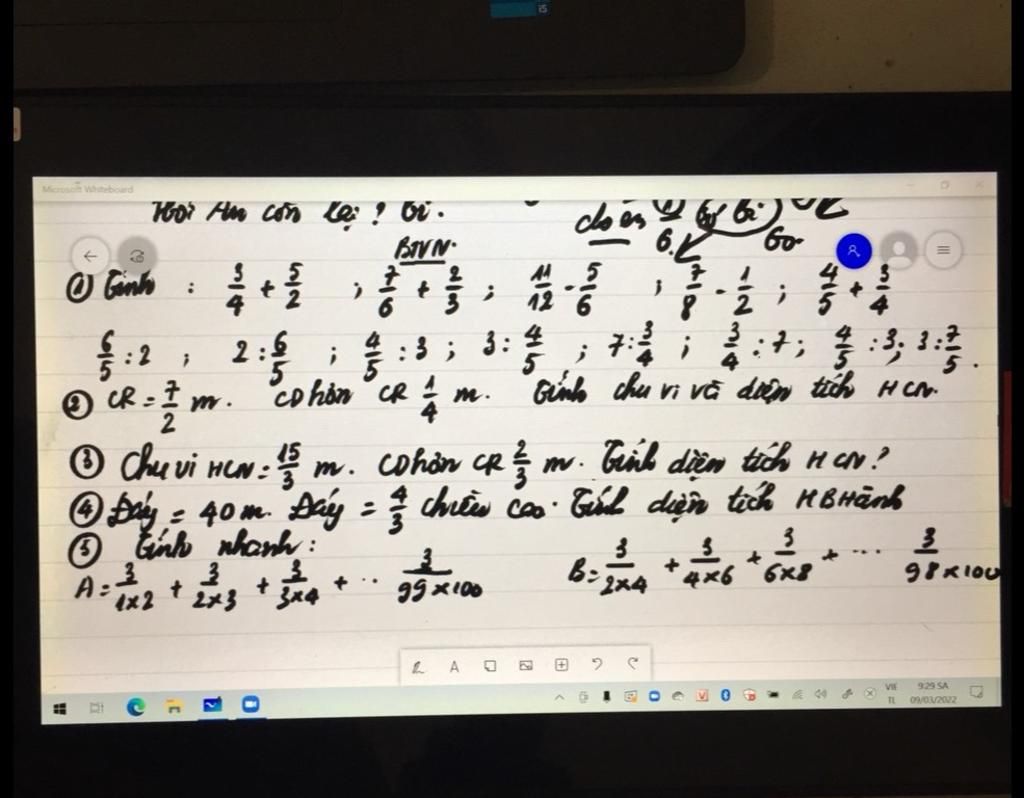 i5
Microsoft Whiteboard
Hỏi An còn lại ? bi.
BTVN.
① Tính : 3/4 + 5/2 ; 7/6 + 2/3 ; 11/12 - 5/6 ; 7/8 - 1/2 ; 4/5 + 3/4
6/5 : 2 ; 2 : 6/5 ; 4/5 : 3 ; 3 : 4/5 ; 7 : 3/4 ; 3/4 : 7 ; 4/5 : 3 ; 3 : 7/5 .
② CR = 7/2 m. CD hơn CR 1/4 m. Tính chu vi và diện tích HCN.
③ Chu vi HCN = 15/3 m. CD hơn CR 2/3 m. Tính diện tích HCN ?
④ Đáy = 40 m. Đáy = 4/3 chiều cao. Tính diện tích HBHành
⑤ Tính nhanh :
A = 3/1×2 + 3/2×3 + 3/3×4 + .. 3/99×100 B = 3/2×4 + 3/4×6 + 3/6×8 + ... 3/98×100
A
VIE 9:29 SA
TL 09/03/2022